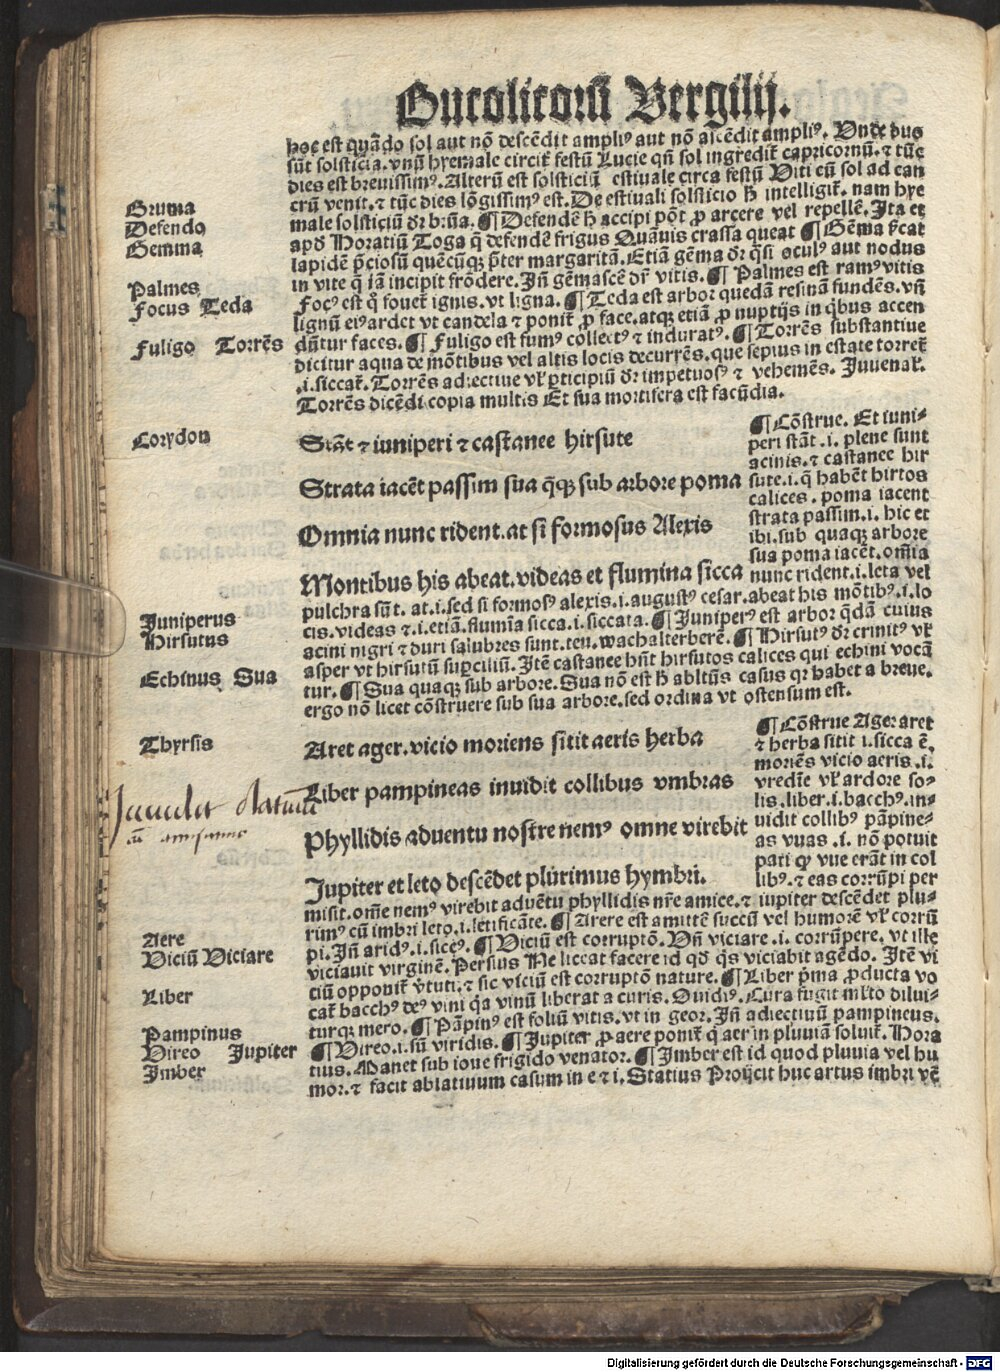 Bucolicorū Vergilij.
hoc est quādo sol aut nō descēdit ampliꝰ aut nō ascēdit ampliꝰ. Unde duo
sūt solsticia. vnū hyemale circit̄ festū Lucie qn̄ sol ingredit̄ capricornū. ⁊ tūc
dies est breuissimꝰ. Alterū est solsticiū estiuale circa festū Viti cū sol ad can
crū venit. ⁊ tūc dies lōgissimꝰ est. De estiuali solsticio h̄ intelligit̄. nam hye
Bruma
male solsticiū dr̄ br̄ua. ¶ Defendē h̄ accipi pōt ꝓ arcere vel repellē. Ita et
Defendo
apd̄ Horatiū Toga q̄ defendē frigus Quāuis crassa queat ¶ Gēma p̄cat
Gemma
lapidē p̄ciosū quēcūqꝫ p̄ter margaritā. Etiā gēma dr̄ q̄si oculꝰ aut nodus
in vite q̄ iā incipit frōdere. Jn̄ gēmascē dr̄ vitis. ¶ Palmes est ramꝰ vitis
Palmes
Focꝰ est q̄ fouet̄ ignis. vt ligna. ¶ Teda est arbor quedā resinā fundēs. vn̄
Focus Teda
lignū eiꝰ ardet vt candela ⁊ ponit̄ ꝓ face. atqꝫ etiā ꝓ nuptijs in q̄bus accen
dūtur faces. ¶ Fuligo est fumꝰ collectꝰ ⁊ induratꝰ. ¶ Torrēs substantiue
Fuligo Torrēs
dicitur aqua de mōtibus vel altis locis decurrēs. que sepius in estate torret̄
.i. siccat̄. Torrēs adiectiue vl̄ ꝑticipiū dr̄ impetuosꝰ ⁊ vehemēs. Juuenal̄.
Torrēs dicēdi copia multis Et sua mortifera est facūdia.
Corydon
Stāt ⁊ iuniperi ⁊ castanee hirsute
Strata iacēt passim sua q̄qꝫ sub arbore poma
Omnia nunc rident. at si formosus Alexis
Montibus his abeat. videas et flumina sicca
¶ Cōstrue. Et iuni-
peri stāt .i. plene sunt
acinis. ⁊ castanee hir
sute. i. q̄ habēt hirtos
calices. poma iacent
strata passim. i. hic et
ibi. sub quaqꝫ arbore
sua poma iacēt. om̄ia
nunc rident. i. leta vel
pulchra sūt. at. i. sed si formosꝰ alexis. i. augustꝰ cesar. abeat his mōtibꝰ. i. lo
cis. videas ⁊. i. etiā. flumīa sicca. i. siccata. ¶ Juniperꝰ est arbor q̄dā cuius
Juniperus
acini nigri ⁊ duri salubres sunt. teu. wachalterberē. ¶ Hirsutꝰ dr̄ crinitꝰ vl̄
Hirsutus
asper vt hirsutū suꝑciliū. Itē castanee hn̄t hirsutos calices qui echini vocā
Echinus Sua
tur. ¶ Sua quaqꝫ sub arbore. Sua nō est h̄ abltiꝰ casus qꝛ habet a breue.
ergo nō licet cōstruere sub sua arbore. sed ordina vt ostensum est.
Thyrsis
Aret ager. vicio moriens sitit aeris herba
Liber pampineas inuidit collibus vmbras
Phyllidis aduentu nostre nemꝰ omne virebit
Jupiter et leto descēdet plurimus hymbri.
¶ Cōstrue Ager aret
⁊ herba sitit i. sicca ē.
moriēs vicio aeris .i.
vredīe vl̄ ardore so-
lis. liber. i. bacchꝰ. in-
uidit collibꝰ pāpine-
as vuas .i. nō potuit
pati qꝙ vue erāt in col
libꝰ. ⁊ eas corrūpi per
Inuidit
misit. om̄e nemꝰ virebit aduētu phyllidis nr̄e amice. ⁊ iupiter descēdet plu-
rimꝰ cū imbri leto. i. letificāte. ¶ Arere est amittē succū vel humorē vl̄ corrū
Aere
pi. Jn̄ aridꝰ. i. siccꝰ. ¶ Viciū est corruptō. Vn̄ viciare .i. corrūpere. vt ille
Viciū Viciare
viciauit virginē. Persius Ne liceat facere id qd̄ q̄s viciabit agēdo. Itē vi
ciū opponit̄ v̄tuti. ⁊ sic viciū est corruptō nature. ¶ Liber p̄ma ꝓducta vo
Liber
cat̄ bacchꝰ deꝰ vini qa vinū liberat a curis. Ouidiꝰ. Cura fugit ml̄to dilui-
turqꝫ mero. ¶ Pāpinꝰ est foliū vitis. vt in geor. Jn̄ adiectiuū pampineus.
Pampinus
¶ Vireo. i. sū viridis. ¶ Jupiter ꝓ aere ponit̄ q̄ aer in pluuiā soluit̄. Hora
Vireo Jupiter
tius. Manet sub ioue frigido venator. ¶ Imber est id quod pluuia vel hu
Imber
mor. ⁊ facit ablatiuum casum in e ⁊ i. Statius Proijcit huc artus imbri vē
Digitalisierung gefördert durch die Deutsche Forschungsgemeinschaft - DFG